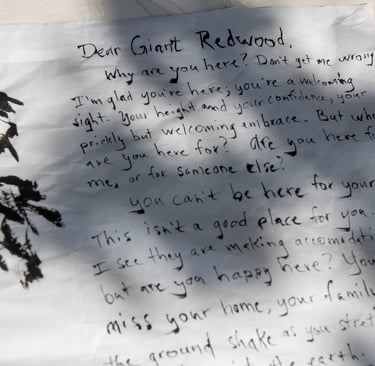 Dear Giant Redwood,
Why are you here? Don't get me wrong
I'm glad you're here; you're a welcoming
sight. Your height and your confidence, your
prickly but welcoming embrace. But who
are you here for? Are you here fo
me, or for someone else?
you can't be here for your
This isn't a good place for you.
I see they are making accomodati
but are you happy here? You
miss your home, your family
the ground shake as you stret
the earth.